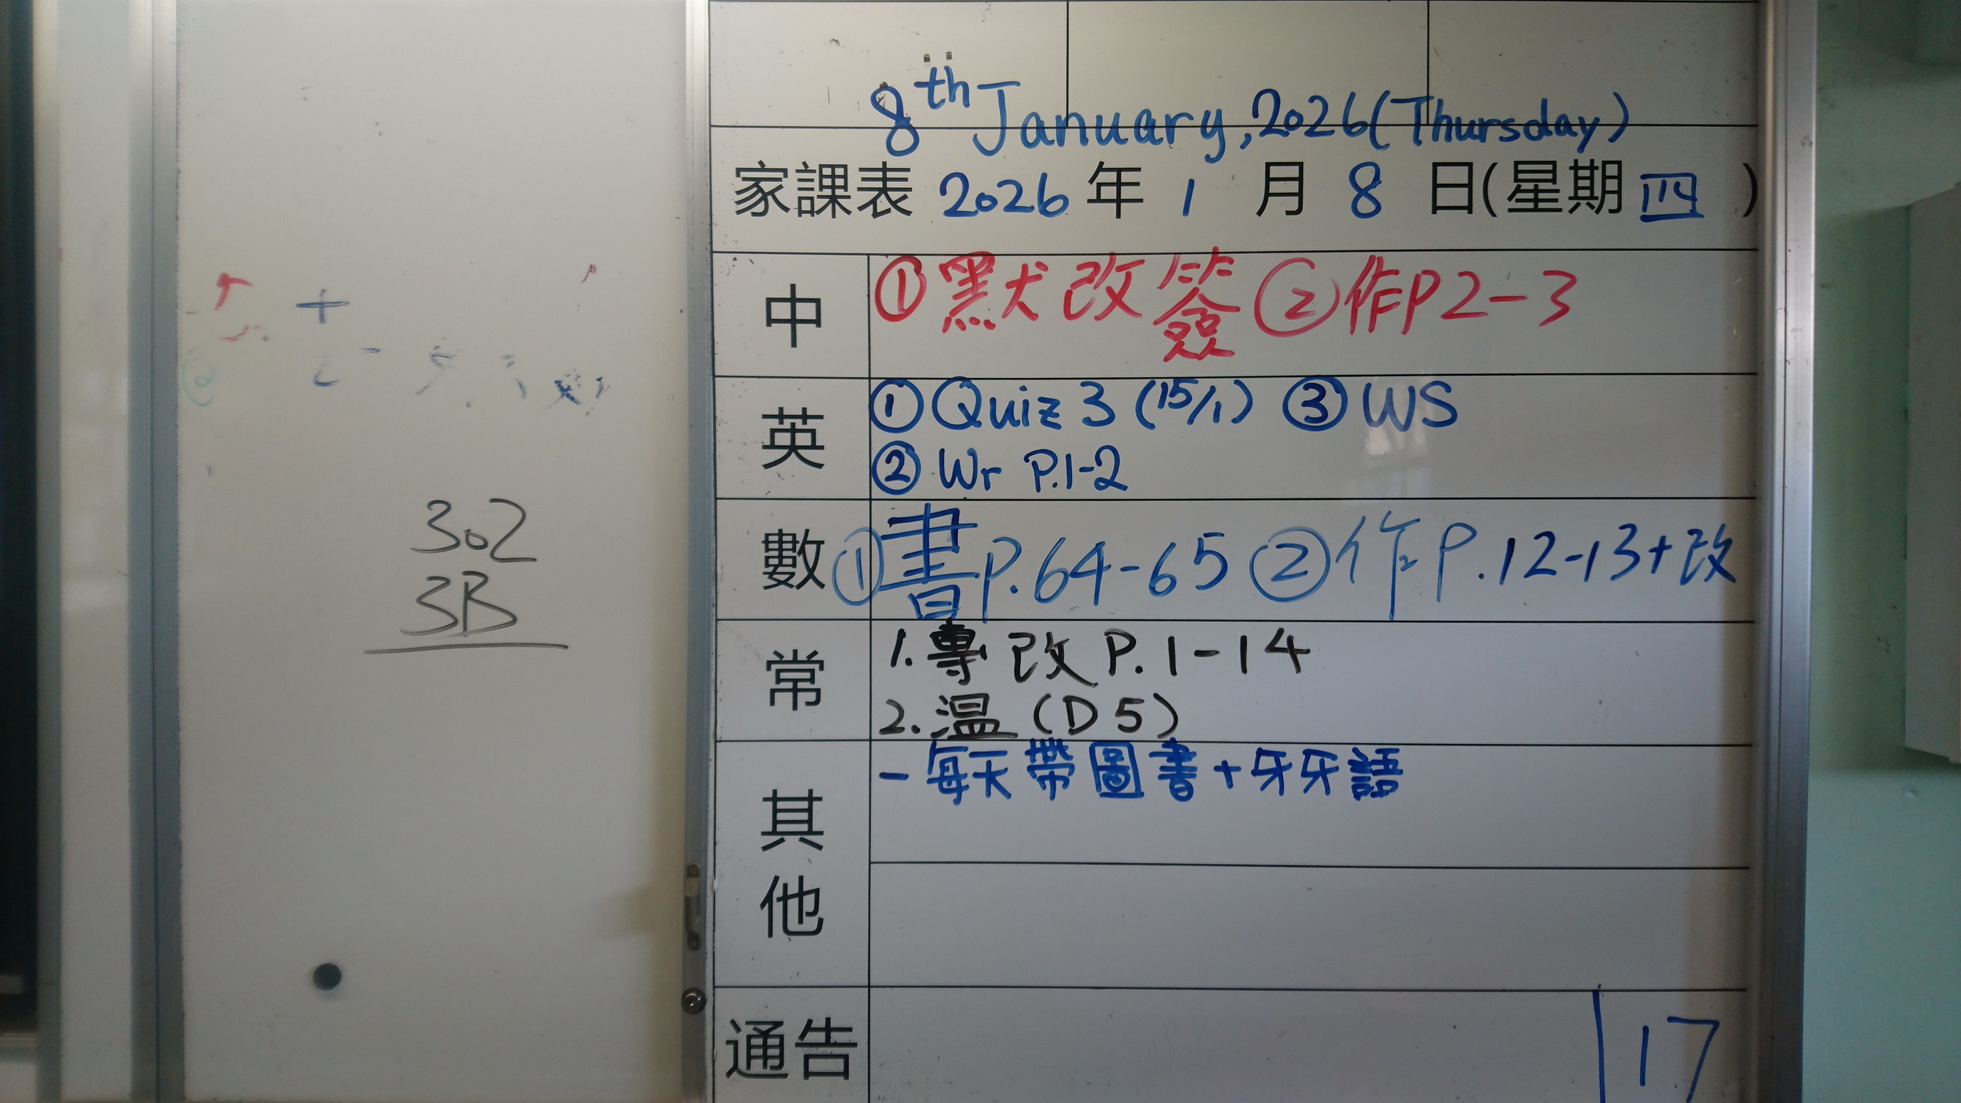 302
3B
8th January, 2026 (Thursday)
家課表 2026 年 1 月 8 日(星期四)
中 ①默改簽 ②作P2-3
英 ① Quiz 3 (15/1) ③ WS
② Wr P.1-2
數 ①書P.64-65 ②作P.12-13+改
常 1. 專改 P.1-14
2. 温 (D5)
其他 - 每天帶圖書+牙牙語
通告 17